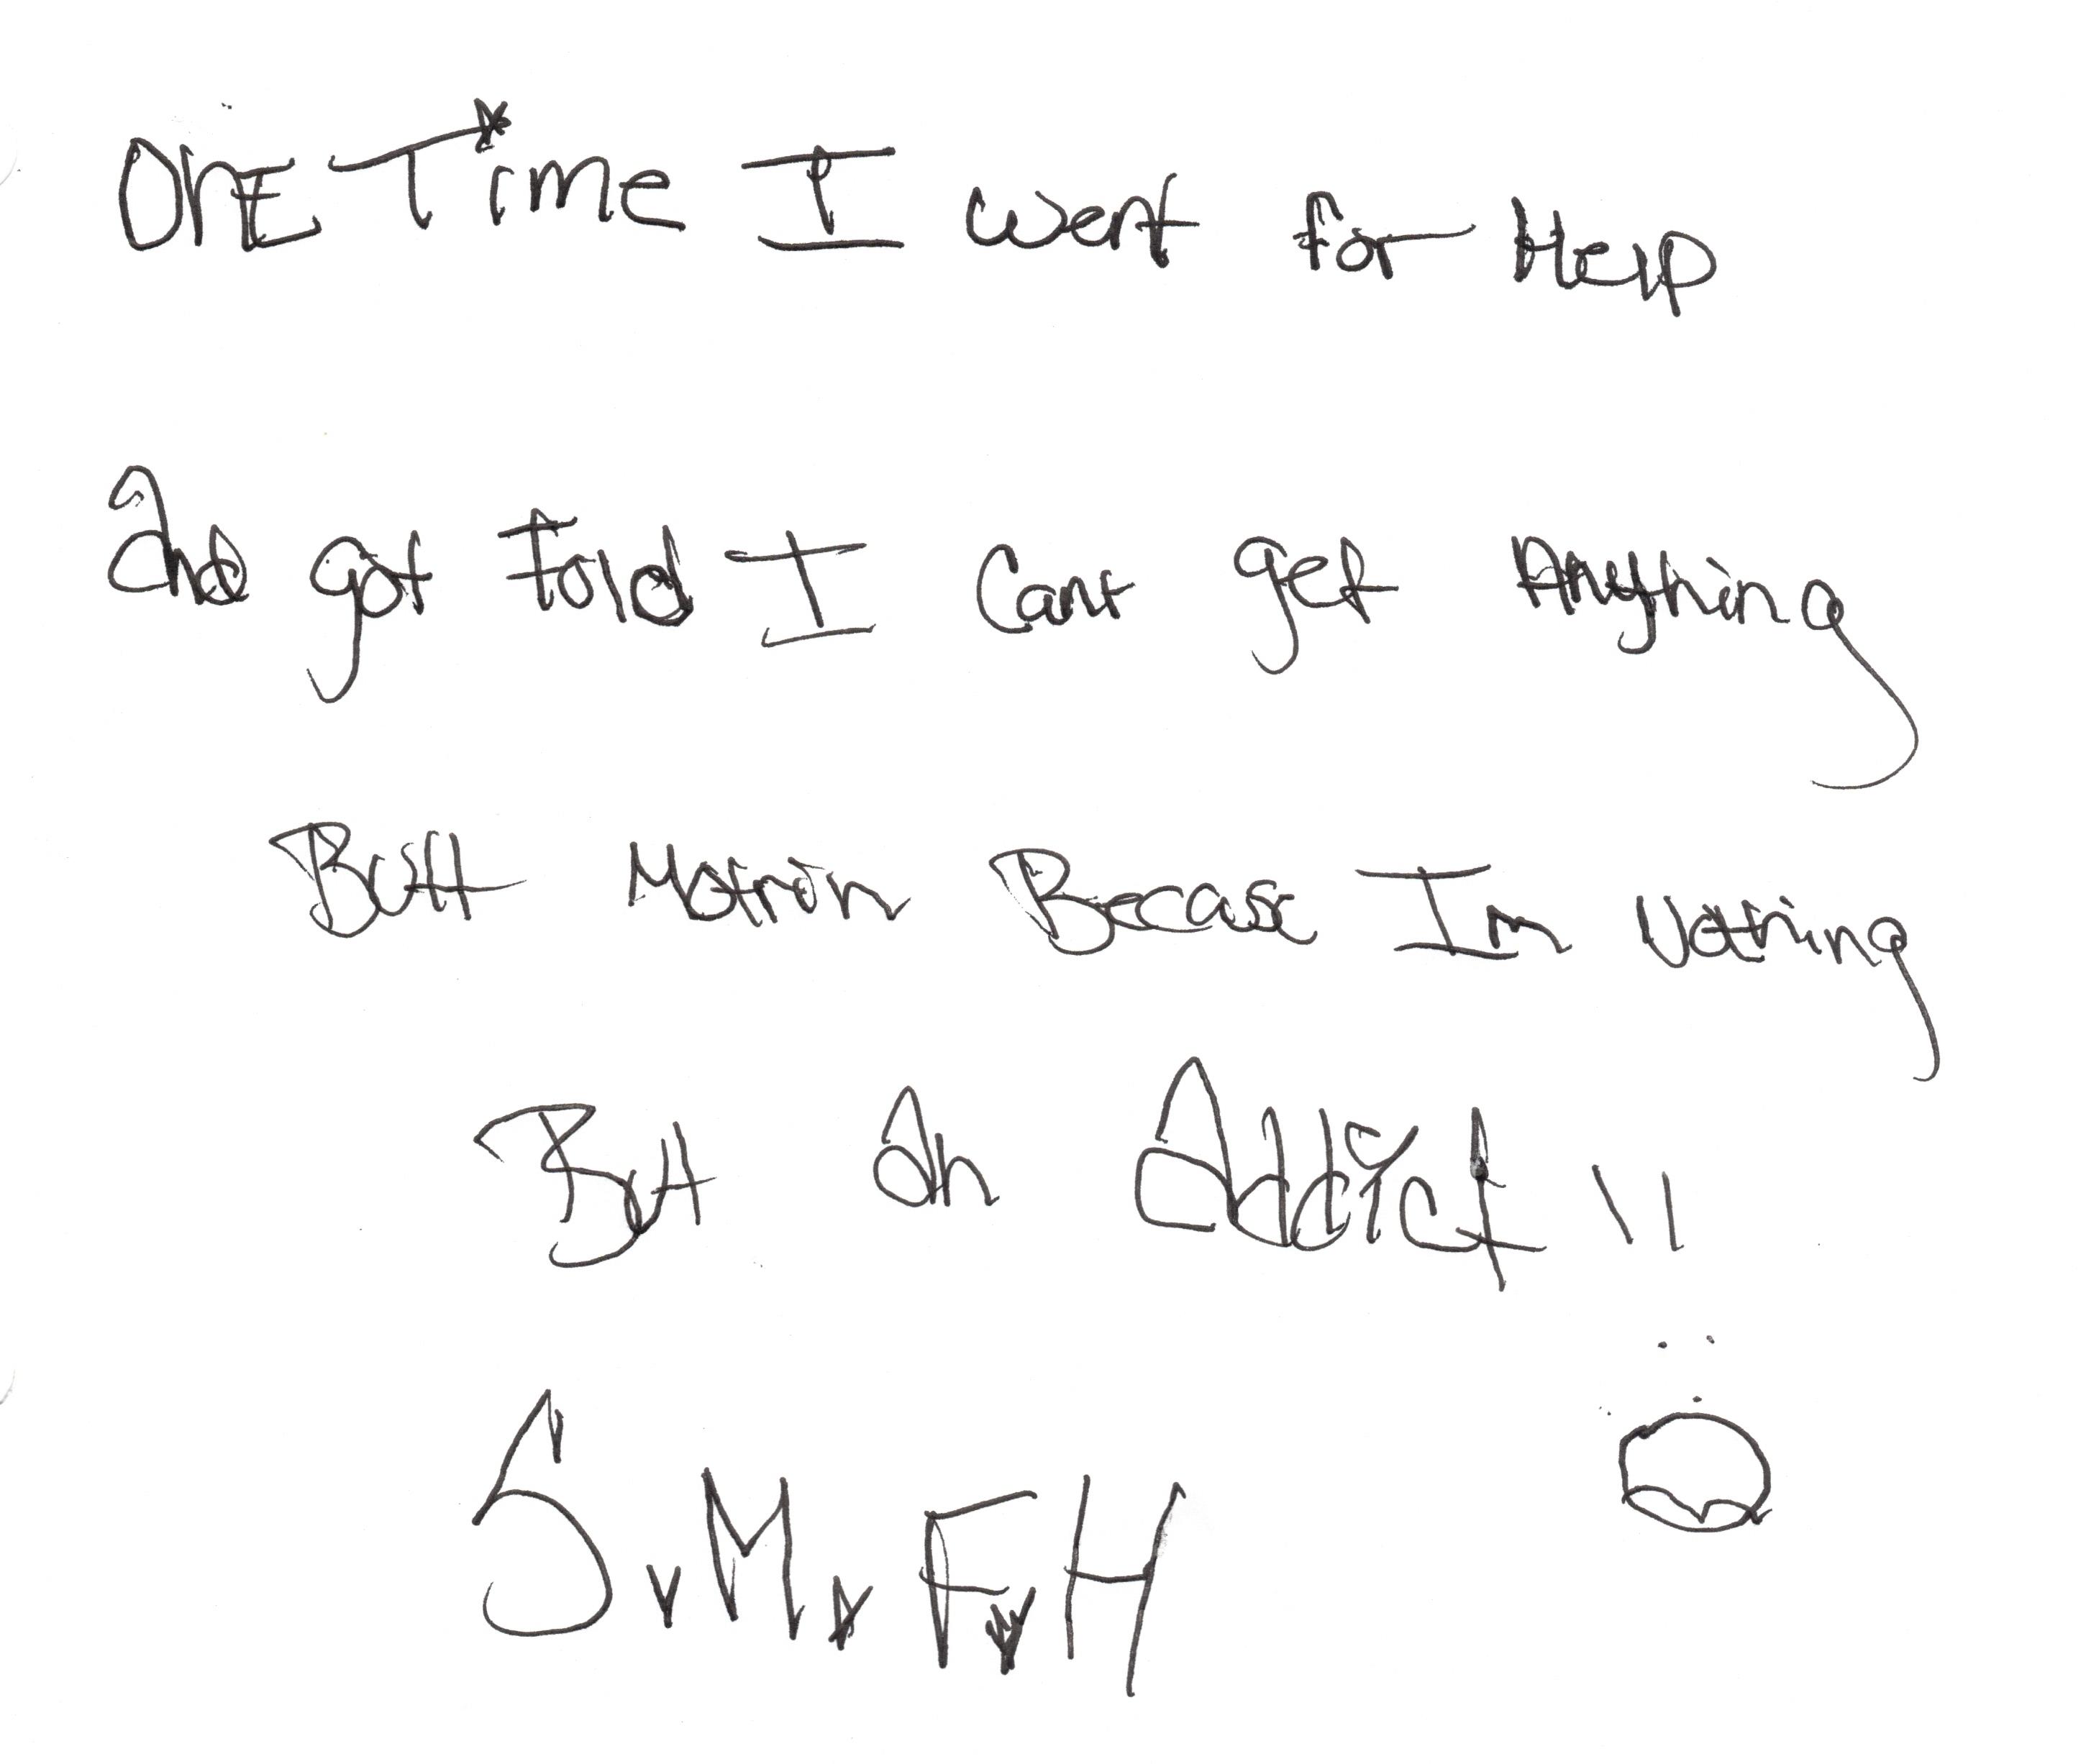 OnE Time I went for Help
And got told I cant get Anything
Butt Motrin Becase Im Nothing
But An Addict !!
S.M.F.H